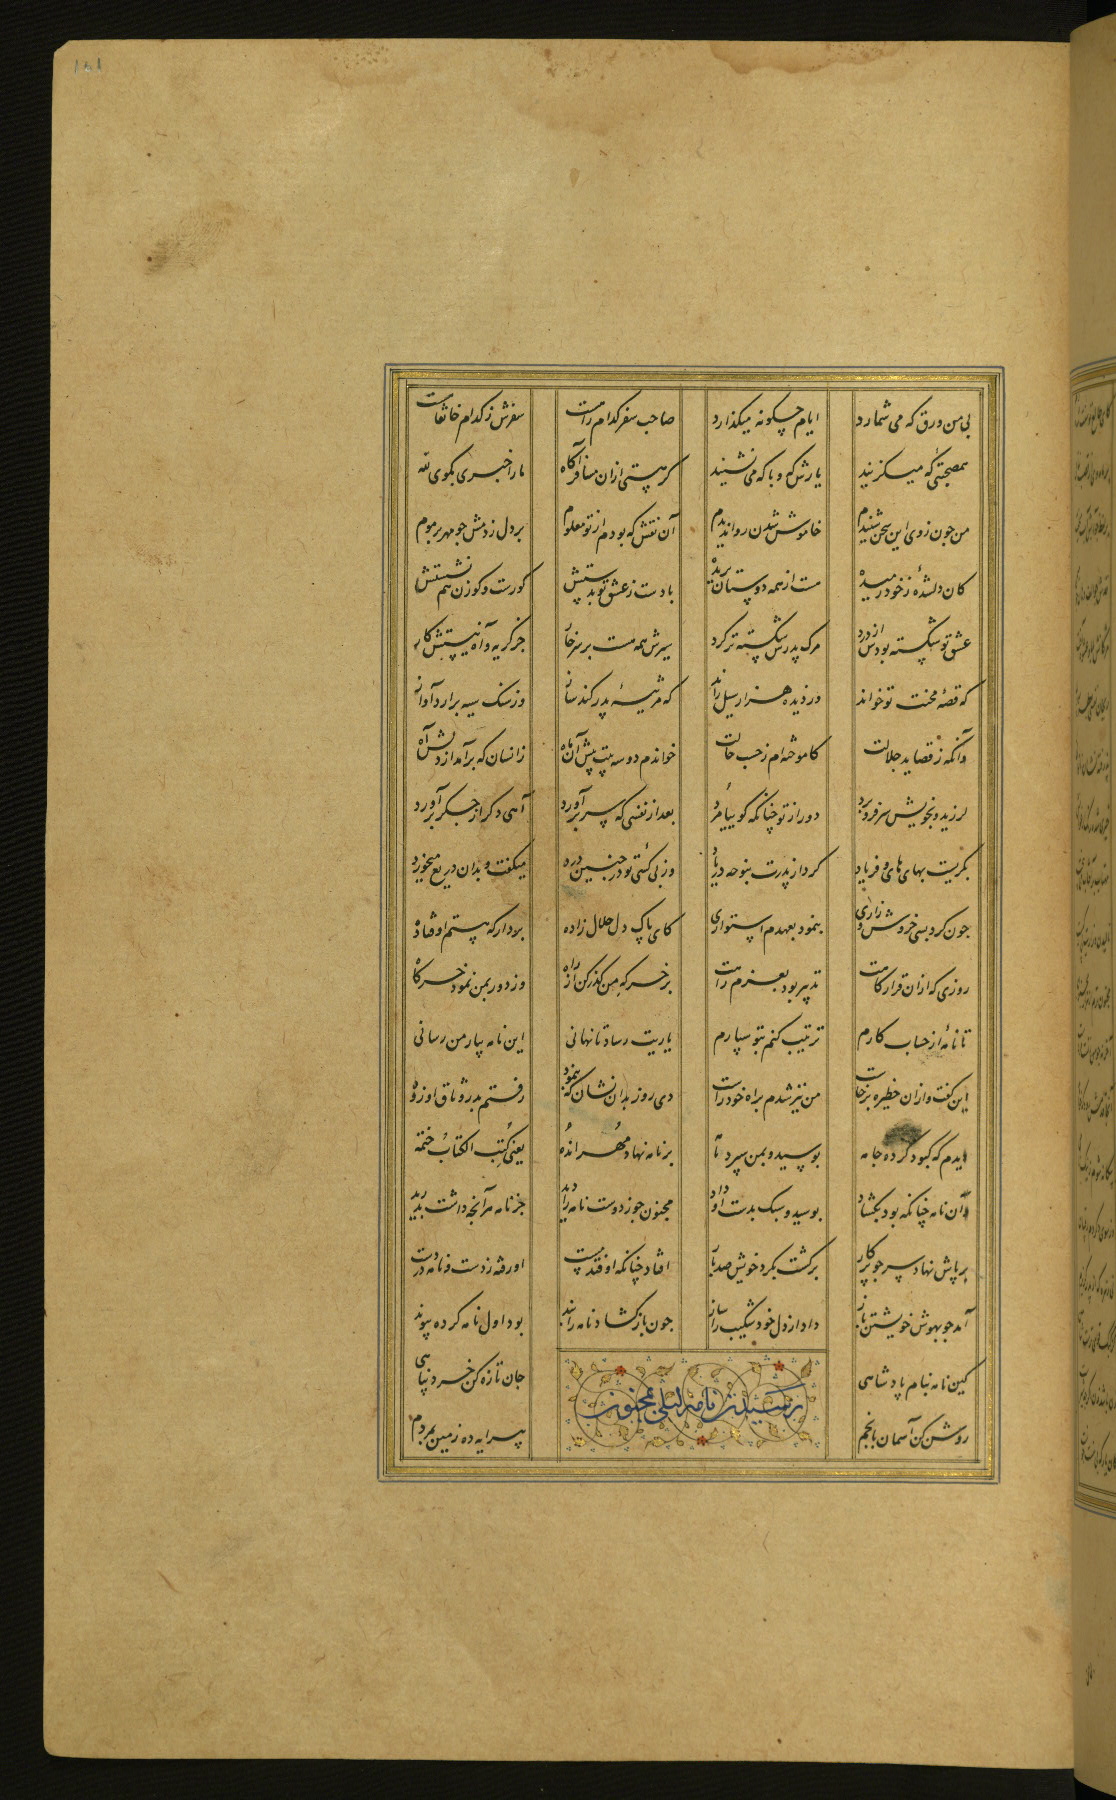 ١٨١
بی من ورق که می شمارد ایام چکونه میکذارد صاحب سفر کدام راهست سفرش ز کدام خانقاهست
همصحبتی که میکزیند یارش که و با که می نشیند کر هستی ازان مسافر آکاه ما را خبری بکوی لله
من چون ز وی این سخن شنیدم خاموش شدن روا ندیدم آن نقش که بودم از تو معلوم بر دل زدمش چو مهر بر موم
کان دلشدهٔ ز خود رمیده هست از همه دوستان بریده بادست ز عشق تو بدستش کورست و کوزن هم نشستش
عشق تو شکسته بودش از درد مرک پدرش شکسته تر کرد سیرش همه هست بر سر خار جز کریه و آه نیستش کار
که قصهٔ محنت تو خواند وز دیده هزار سیل راند که مرثیهٔ پدر کند ساز وز سنک سیه برارد آواز
وآنکه ز قصاید حلالت کاموخته ام ز حسب حالت خواندم دو سه بیت پیش آن ماه زانسان که برآمد از دلش آه
لرزید و بخویش سر فرو برد دور از تو چنانکه کوییا مرد بعد از نفسی که سر برآورد آهی دکر از جکر برآورد
بکریست بهای های و فریاد کرد از پدرت بنوحه در یاد وز بی کسی تو در چنین درد میکفت و بدان دریغ میخورد
چون کرد بسی خروش و زاری بنمود بعهدم استواری کای پاک دل حلال زاده بردار که هستم اوفتاده
روزی که ازان قرار کاهست تدبیر بود بعزم راهست بر خرکه من کذر کن از راه وز دور بمن نمود خرکاه
تا نامهٔ از حساب کارم ترتیب کنم بتو سپارم یاریت رساد تا نهانی این نامه بیار من رسانی
این کفت و ازان حظیره برخاست من نیز شدم براه خود راست دی روز بدان نشان که بنمود رفتم بدر وثاق او زود
دیدم که کبود کرده جامه بوسید و بمن سپرد بر نامه نهاد مهر انده یعنی کتب الکتاب ختمه
وان نامه چنانکه بود بکشاد بوسید و سبک بدست او داد مجنون چو ز دوست نامه را دید جز نامه هر آنچه داشت بدرید
بر پاش نهاد سر چو پرکار برکشت بکرد خویش صد بار افتاد چنانکه اوفتد مست او رفته ز دست و نامه در دست
آمد چو بهوش خویشتن باز داد از دل خود شکیب را ساز چون باز کشاد نامه را بند بود اول نامه کرده پیوند
کین نامه بنام پادشاهی جان تازه کن خرد پناهی
رسیدن نامه لیلی بمجنون
روشن کن آسمان بانجم پیرایه ده زمین بمردم